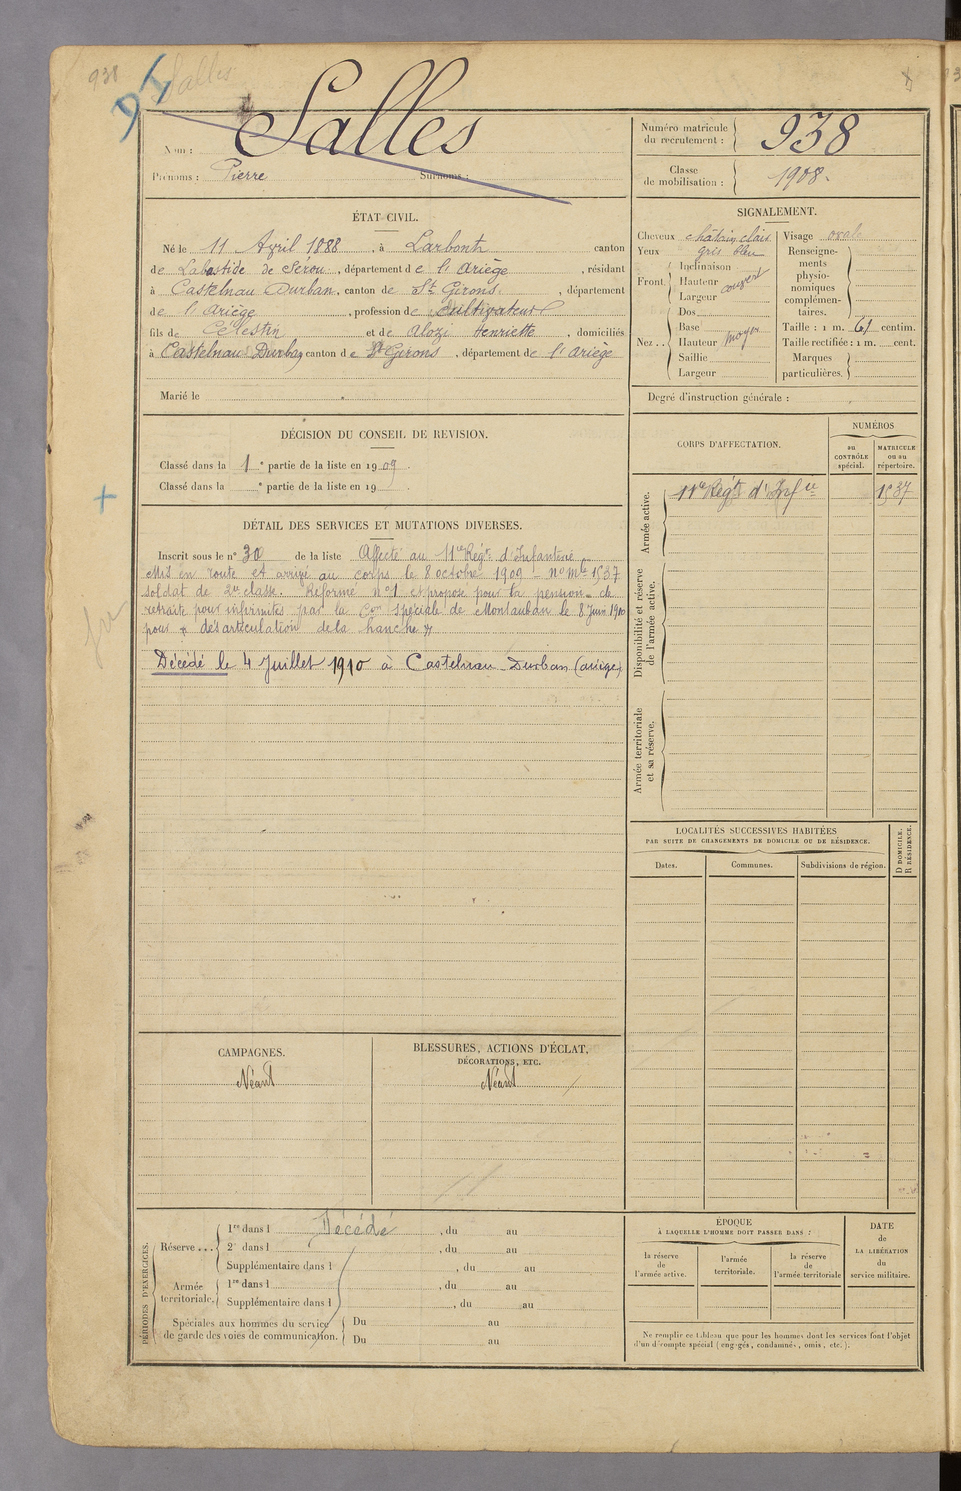 938
91
Salles
Nom : Salles
Prénoms : Pierre Surnoms :
Numéro matricule du recrutement : 938
Classe de mobilisation : 1908.
ÉTAT CIVIL.
Né le 11 Avril 1888, à Larbont canton
de Labastide de Sérou, département de l'Ariège, résidant
à Castelnau Durban, canton de St Girons, département
de l'Ariège, profession de cultivateur
fils de Célestin et de Alozi Henriette, domiciliés
à Castelnau Durban canton de St Girons, département de l'Ariège
Marié le
SIGNALEMENT.
Cheveux châtain clair
Yeux gris bleu
Front. Inclinaison
Hauteur couvert
Largeur
Nez.. Dos
Base
Hauteur moyen
Saillie
Largeur
Visage ovale
Renseignements physionomiques complémentaires.
Taille : 1 m. 61 centim.
Taille rectifiée : 1 m. cent.
Marques particulières.
Degré d'instruction générale :
DÉCISION DU CONSEIL DE REVISION.
Classé dans la 1e partie de la liste en 1909.
Classé dans la e partie de la liste en 19
CORPS D'AFFECTATION.
NUMÉROS
au CONTRÔLE spécial.
MATRICULE ou au répertoire.
Armée active.
11e Régt d'Infie 1537
Disponibilité et réserve de l'armée active.
Armée territoriale et sa réserve.
DÉTAIL DES SERVICES ET MUTATIONS DIVERSES.
Inscrit sous le n° 30 de la liste Affecté au 11e Régt d'Infanterie
Mis en route et arrivé au corps le 8 octobre 1909 - No mle 1537
soldat de 2e classe. Réformé no 1 et proposé pour la pension de
retraite pour infirmités par la Con spéciale de Montauban le 8 Juin 1910
pour " désarticulation de la hanche "
Décédé le 4 Juillet 1910 à Castelnau-Durban (Ariège)
LOCALITÉS SUCCESSIVES HABITÉES
PAR SUITE DE CHANGEMENTS DE DOMICILE OU DE RÉSIDENCE.
Dates. Communes. Subdivisions de région.
D DOMICILE.
R RÉSIDENCE.
CAMPAGNES.
Néant
BLESSURES, ACTIONS D'ÉCLAT,
DÉCORATIONS, ETC.
Néant
PÉRIODES D'EXERCICES.
Réserve ... 1re dans l Décédé, du au
2e dans l , du au
Supplémentaire dans l , du au
Armée territoriale. 1re dans l , du au
Supplémentaire dans l , du au
Spéciales aux hommes du service de garde des voies de communication. Du au
Du au
ÉPOQUE
À LAQUELLE L'HOMME DOIT PASSER DANS :
la réserve de l'armée active.
l'armée territoriale.
la réserve de l'armée territoriale
DATE
de
LA LIBÉRATION
du
service militaire.
Ne remplir ce tableau que pour les hommes dont les services font l'objet
d'un décompte spécial (engagés, condamnés, omis, etc.).